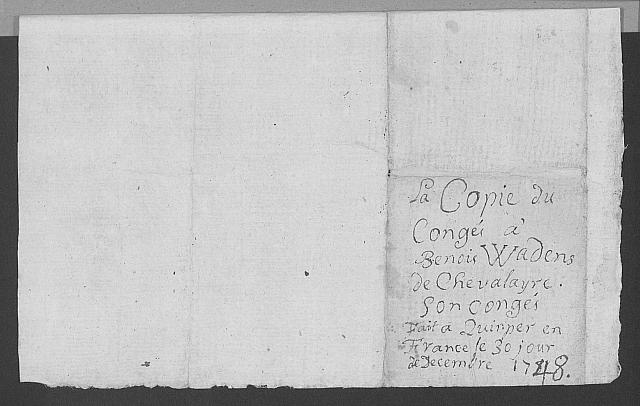 La Copie du
Congéi à
Benois Wadens
de Chevalayre.
Son congéi
Fait a Quimper en
France le 30 jour
de Decembre 1748.